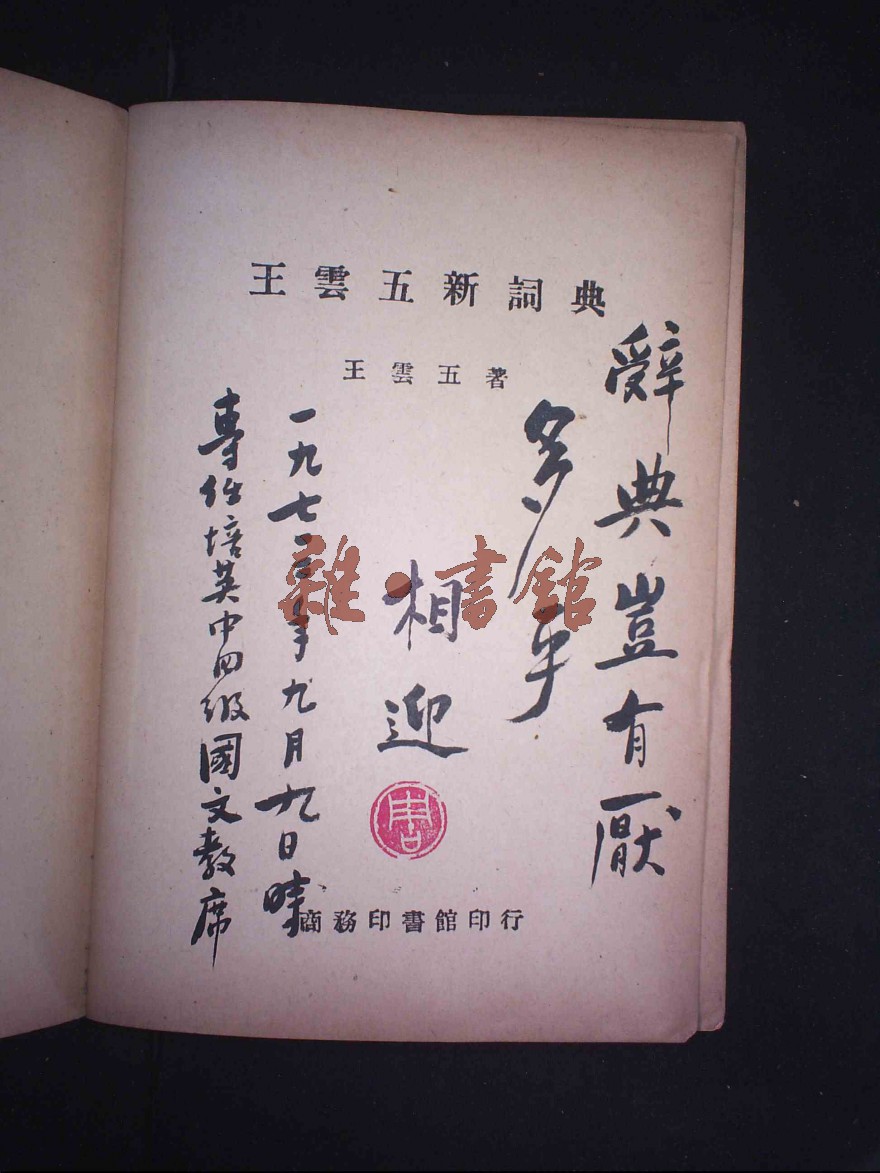 王雲五新詞典
王雲五著
辭典豈有厭
多乎
相迎
一九七三年九月九日時
專任培英中四級國文教席
商務印書館印行
雜·書館